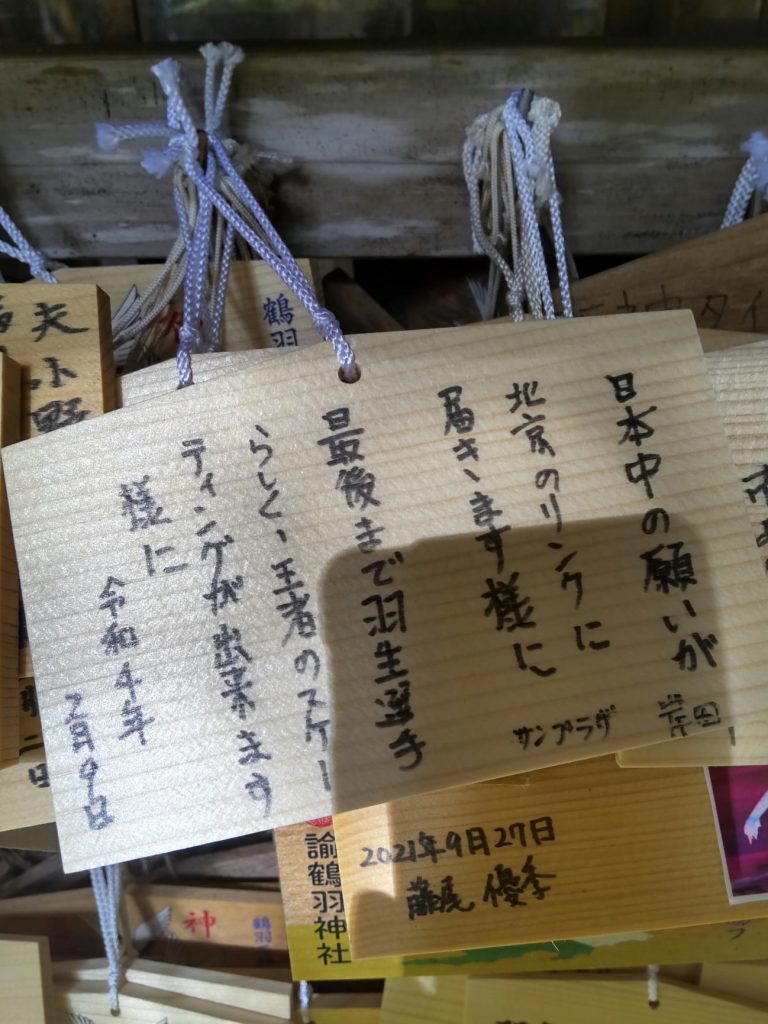 日本中の願いが
北京のリンクに
届きます様に
最後まで羽生選手
らしく、王者のスケー
ティングが出来ます
様に
令和4年
2月9日
サンプラザ
岸田
2021年9月27日
藤尾 優季
諭鶴羽神社
夫
小野
鶴羽
神
神
鶴羽